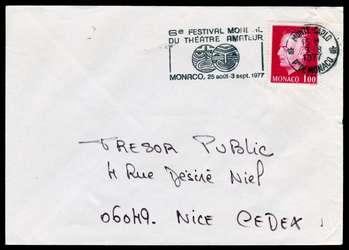 6e FESTIVAL MONDIAL
DU THÉATRE AMATEUR
MONACO, 25 août-3 sept. 1977
MONTE-CARLO
1977
Pté MONACO
MONACO 1.00
TRESOR PUBLIC
4 Rue Désiré Niel
06049. NICE CEDEX